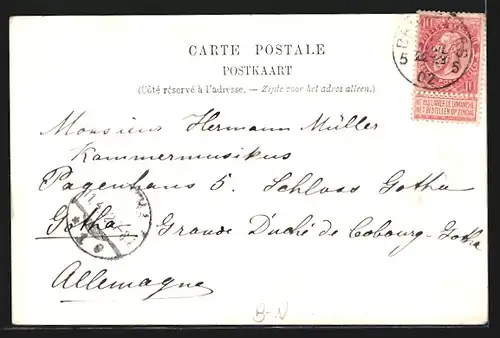 CARTE POSTALE
POSTKAART
(Côté réservé à l'adresse. — Zijde voor het adres alleen.)
10 10
NE PAS LIVRER LE DIMANCHE
NIET BESTELLEN OP ZONDAG
5 5
02
Monsieur Hermann Müller
Kammermusikus
Pagenhaus 5. Schloss Gotha
Gotha Grande Duché de Cobourg-Gotha
Allemagne
B-N